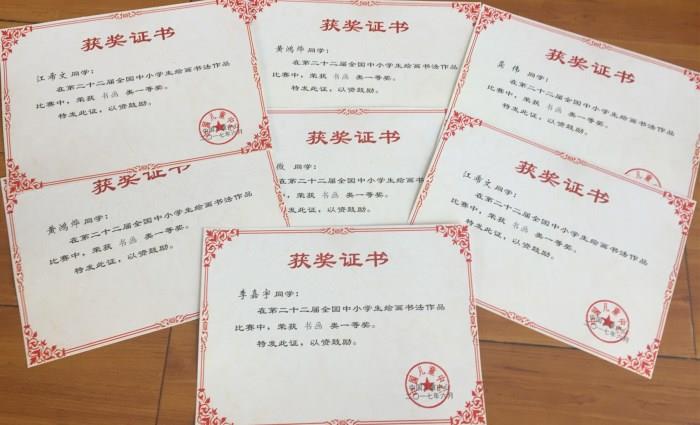 获奖证书
江希文同学：
在第二十二届全国中小学生绘画书法作品
比赛中，荣获 书画 类一等奖。
特发此证，以资鼓励。
二〇一七年六月
获奖证书
黄鸿烨同学：
在第二十二届全国中小学生绘画书法作品
比赛中，荣获 书画 类一等奖。
特发此证，以资鼓励。
获奖证书
伟 同学：
在第二十二届全国中小学生绘画书法作品
比赛中，荣获 书画 类一等奖。
特发此证，以资鼓励。
获奖证书
黄鸿烨同学：
在第二十二届全国中小学生绘画书法作品
比赛中，荣获 书画 类一等奖。
特发此证，以资鼓励。
获奖证书
同学：
在第二十二届全国中小学生绘画书法作品
比赛中，荣获 书画 类一等奖。
特发此证，以资鼓励。
获奖证书
江希文同学：
在第二十二届全国中小学生绘画书法作品
比赛中，荣获 书画 类一等奖。
特发此证，以资鼓励。
二〇一七年六月
获奖证书
李嘉宇同学：
在第二十二届全国中小学生绘画书法作品
比赛中，荣获 书画 类一等奖。
特发此证，以资鼓励。
中国儿童中心
二〇一七年六月